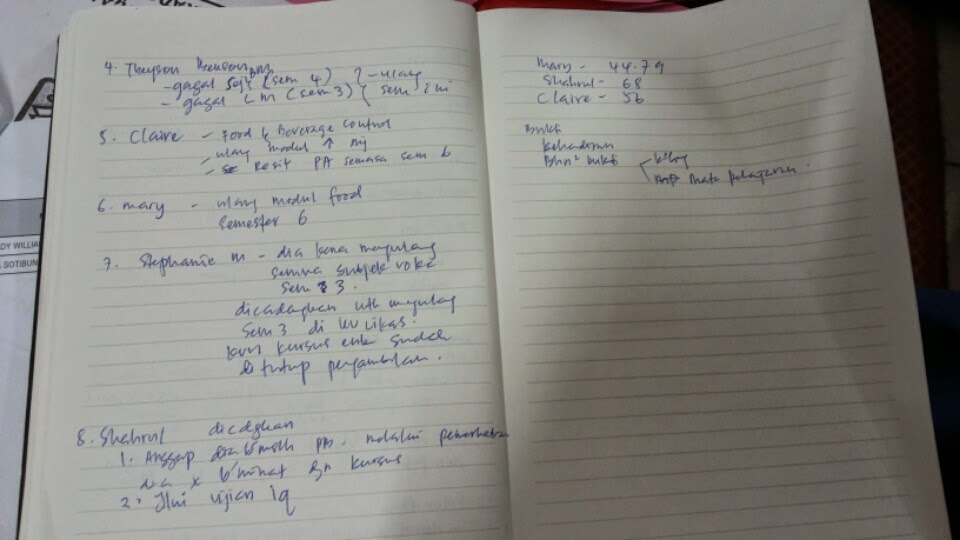 DY WILLIA
SOTIBUN
4. Theyson
- gagal Sej (sem 4) } - ulang
- gagal LM (sem 3) sem ini
5. Claire - Food & Beverage control
- ulang modul ↑
- Resit PA semasa sem 6
6. mary - ulang modul food
Semester 6
7. Stephanie M - dia kena mengulang
semua subjek
Sem 3.
dicadangkan utk mengulang
Sem 3 di
kursus sudah
ditutup pengambilan.
8. Shahrul dicdgkan
1. Anggap dia melalui
dia x b'minat dgn kursus
2. ujian iq
Mary - 44.79
Shahrul - 68
Claire - 56
Bukti
kehadiran
Bhn² bukti
mata pelajaran.